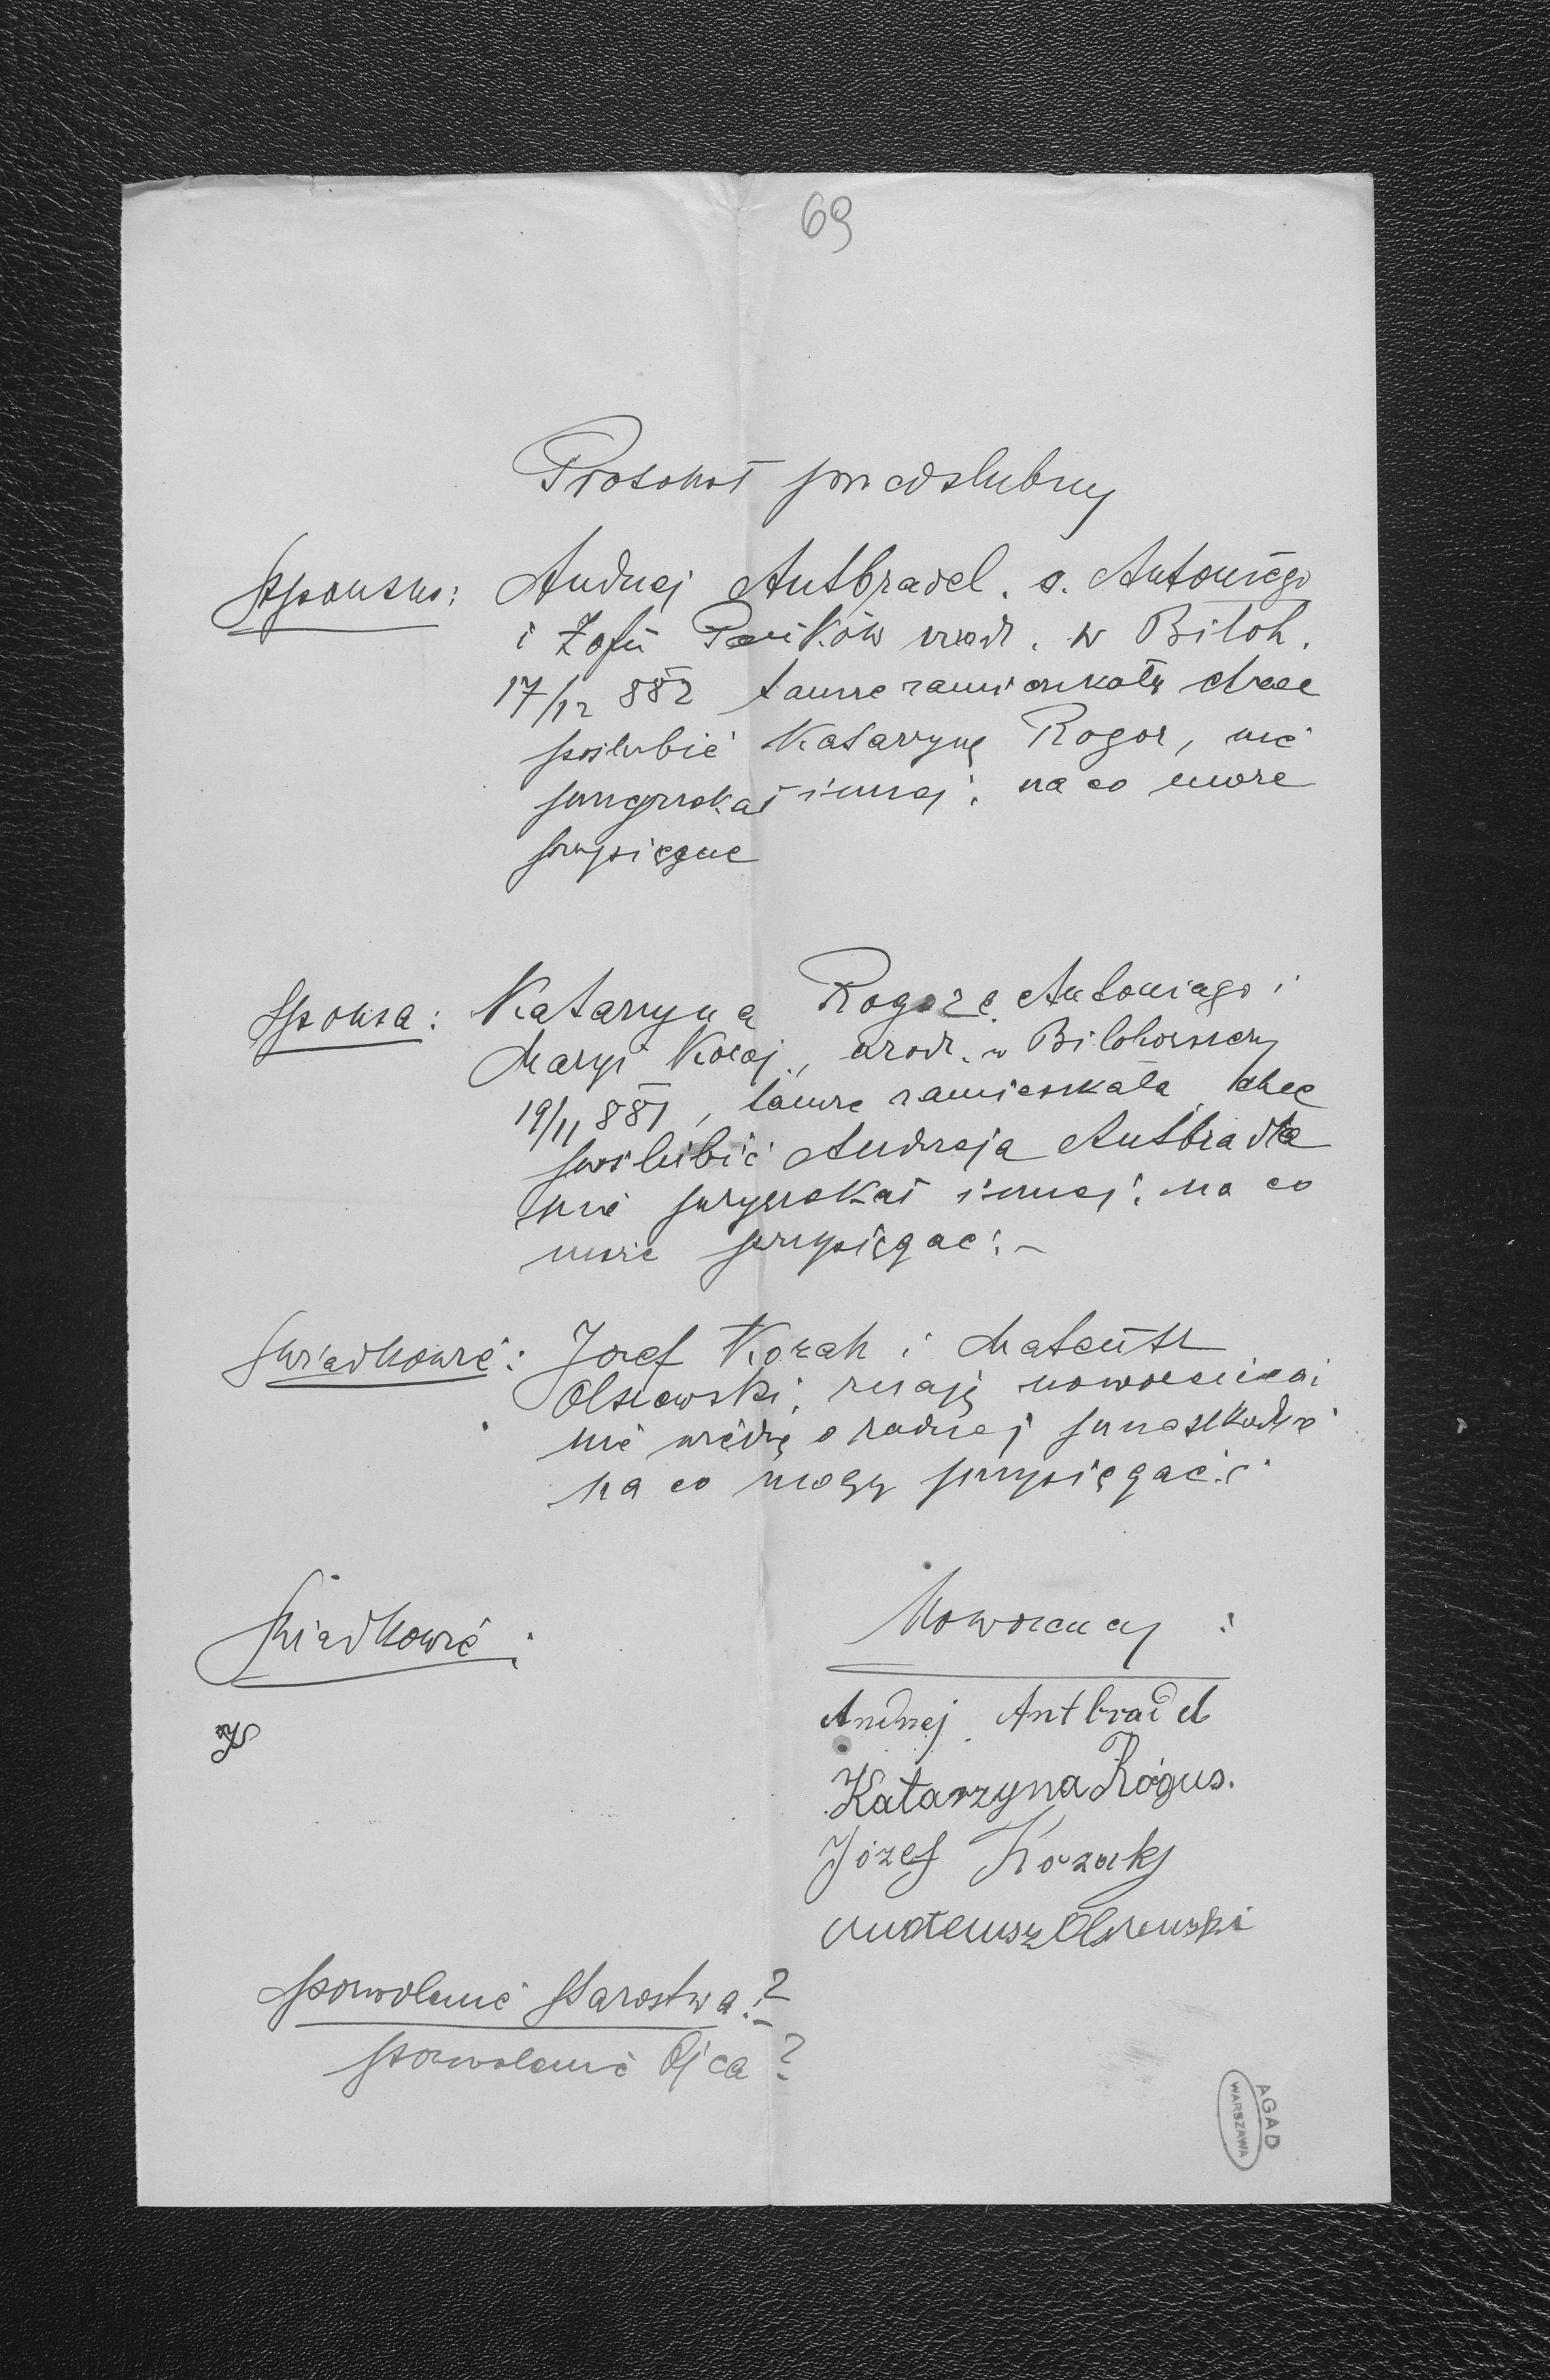 69
Protokół przedślubny
Sponsus: Andrzej Antbradel. s. Antoniego
i Zofii urodz. w Biłoh.
17/12 882 tamże zamieszkały chce
poślubić Katarzynę Rogoz, nie
przyrzekał innej; na co może
przysięgać
Sponsa: Katarzyna Antoniego i
Maryi urodz. w Biłohorszczy
19/11 881, tamże zamieszkała chce
poślubić Andrzeja Antbradla
nie innej; na co
może przysięgać:-
Świadkowie: Józef Kozak i Mateusz
Olszewski; znają nowożeńców i
nie wiedzą o żadnej przeszkodzie
na co mogą przysięgać
Świadkowie: Nowożeńcy:
Andrzej Antbradel
Katarzyna Rogus.
Józef Kozak
Mateusz Olszewski
pozwolenie Starostwa?
pozwolenie Ojca?
AGAD
WARSZAWA